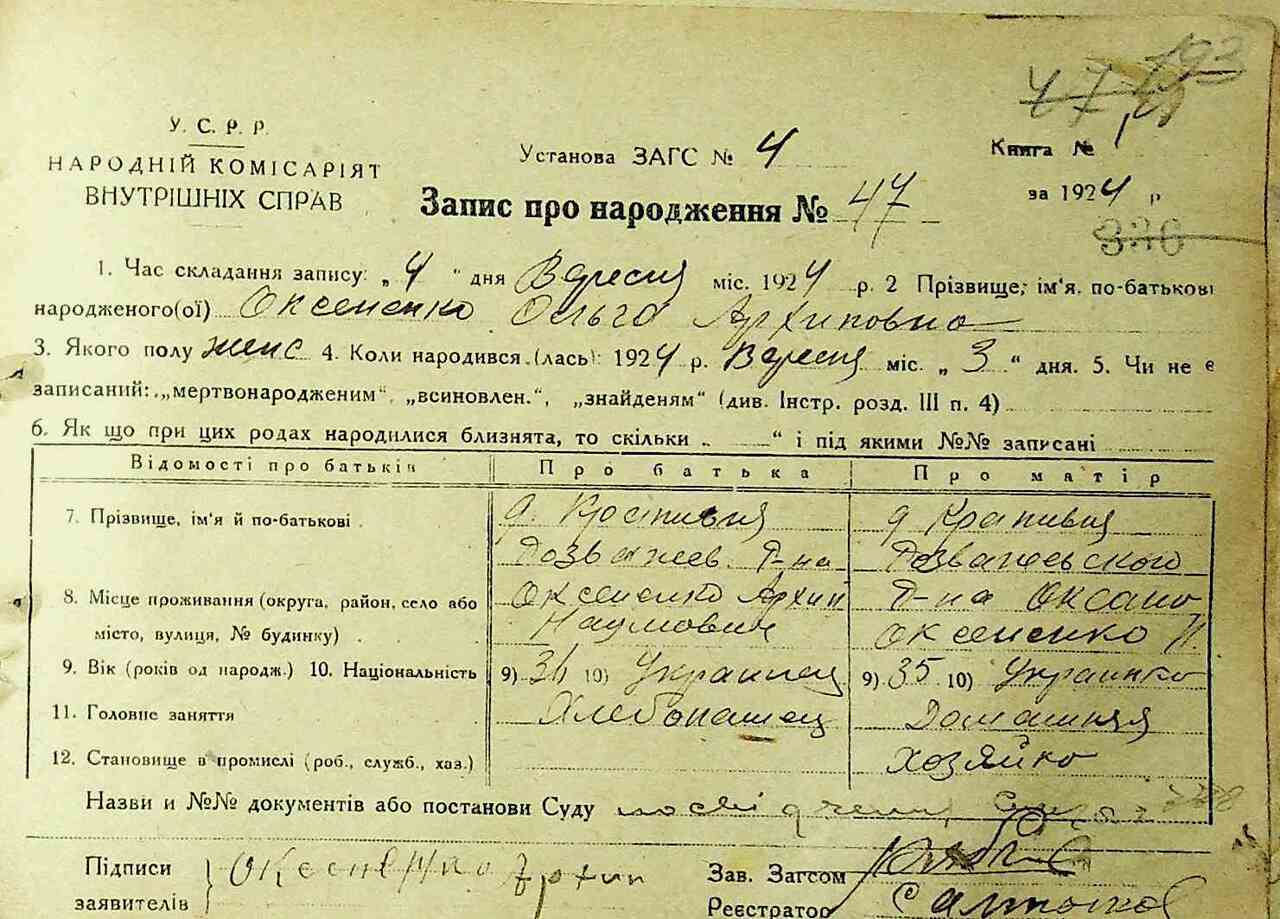 У. С. Р. Р.
НАРОДНІЙ КОМІСАРІЯТ
ВНУТРІШНІХ СПРАВ
Установа ЗАГС № 4
Книга №
за 1924 р
Запис про народження № 47
1. Час складання запису: „4 " дня Вересня міс. 1924 р. 2 Прізвище, ім'я, по-батькові
народженого(ої) Оксененко Ольга Архиповна
3. Якого полу женс 4. Коли народився (лась): 1924 р. Вересня міс. „ 3 " дня. 5. Чи не є
записаний: „мертвонародженим", „всиновлен.", „знайденям" (див. Інстр. розд. III п. 4)
6. Як що при цих родах народилися близнята, то скільки „ " і під якими №№ записані
Відомості про батьків Про батька Про матір
7. Прізвище, ім'я й по-батькові д. Крапивня д Крапивня
р-на
8. Місце проживання (округа, район, село або Оксененко Архип р-на Оксана
місто, вулиця, № будинку) Наумович Оксененко
9. Вік (років од народж.) 10. Національність 9) 36 10) Украинец 9) 35 10) Украинка
11. Головне заняття Хлебопашец Домашняя
12. Становище в промислі (роб., служб., хаз.) хозяйка
Назви и №№ документів або постанови Суду
Підписи Оксененко Архип Зав. Загсом
заявителів Реєстратор